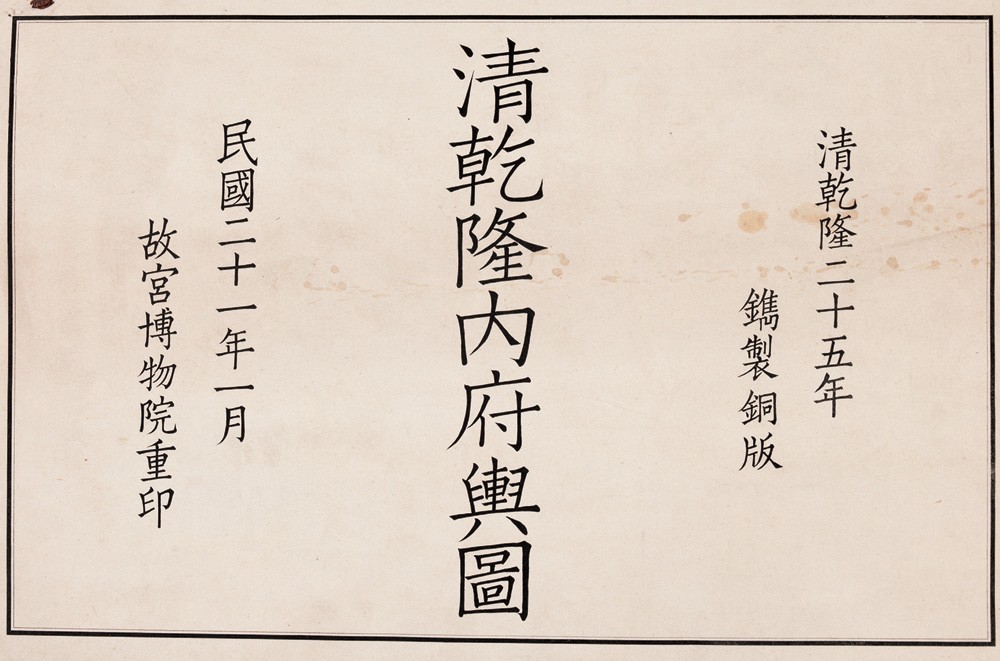 清乾隆二十五年
鐫製銅版
清乾隆内府輿圖
民國二十一年一月
故宮博物院重印